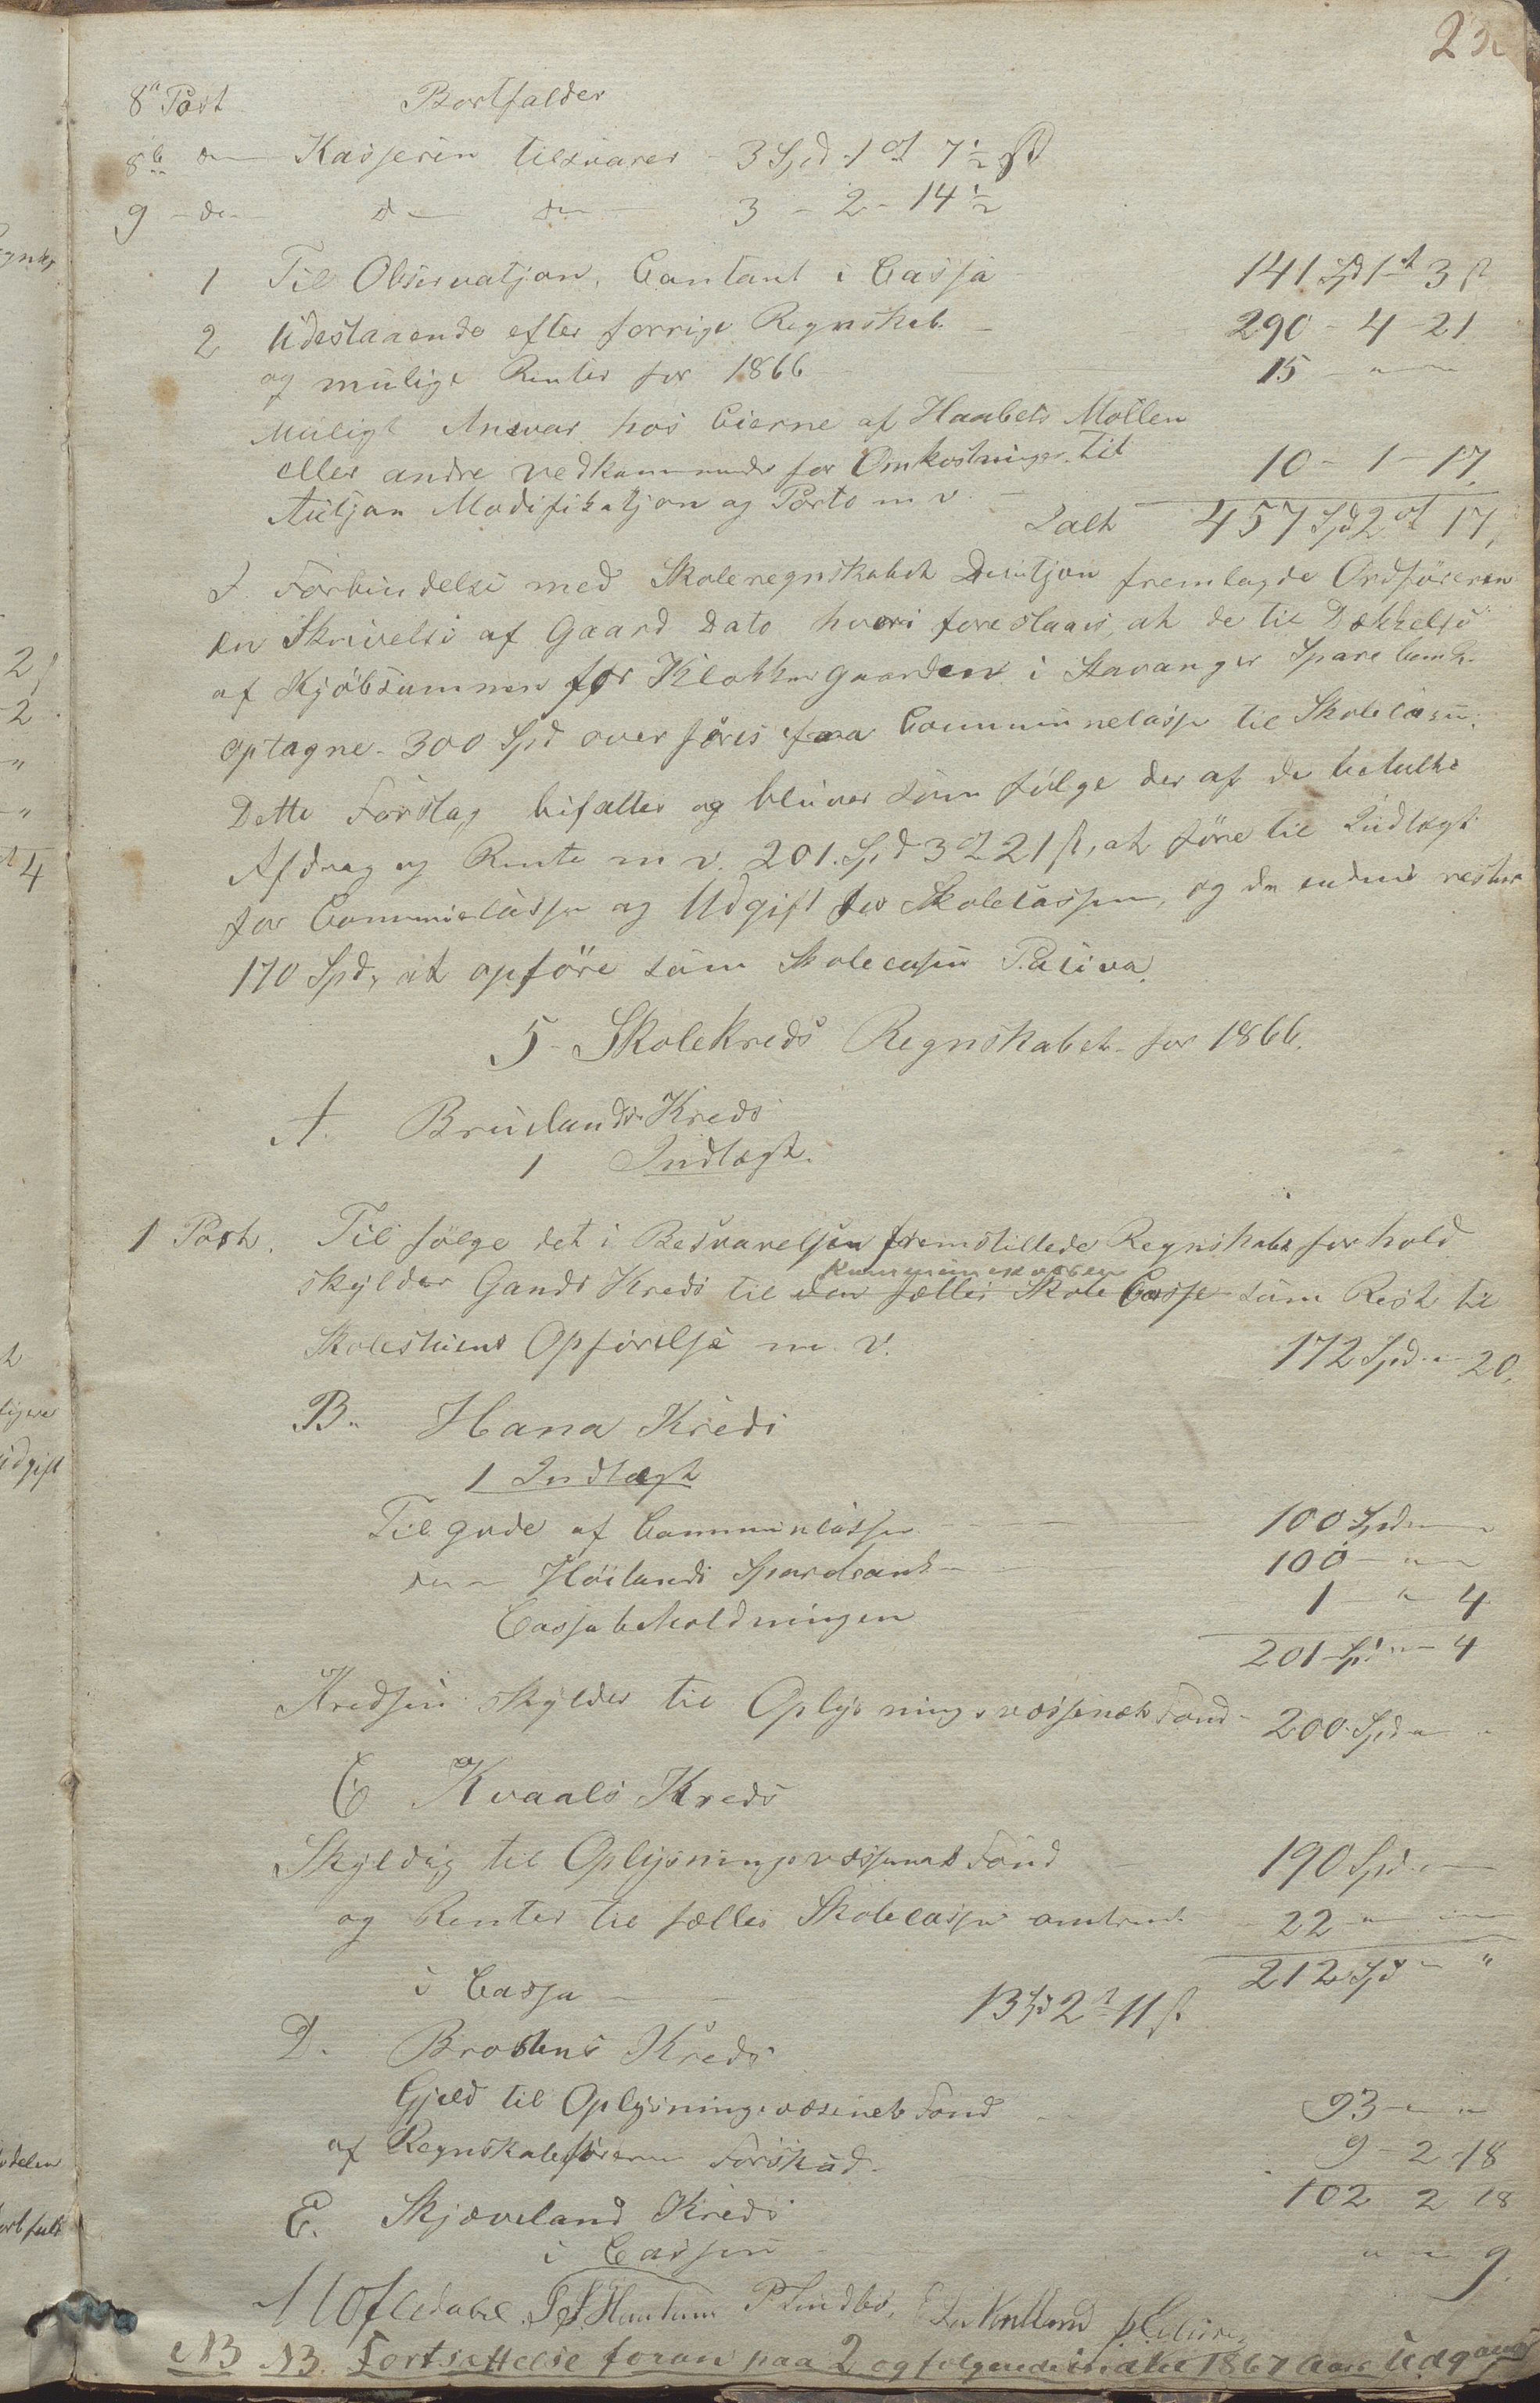 8a Post Bortfalder
8b do Kasseren tilsvarer - 3 Spd 1 ort 7½ s
9 - do - do do - 3 - 2 - 14½
1 Til Observatjon, Contant i Cassa 141 Spd 1 ort 3 s
2 Udestaaende efter forrige Regnskab. - 290 - 4 - 21
og mulige Renter for 1866 15 - " -
Muligt Ansvar hos Eierne af Haabets Möllen
eller andre vedkommende for Omkostninger til
Modifikatjon og Porto m v. - 10 - 1 - 17
Ialt 457 Spd 2 ort 17,
I Forbindelse med Skoleregnskabet Desitjon fremlagde Ordföreren
en Skrivelse af Gaard Dato hvori forestaaes, at de til Dækkelse
af Kjöbsummen for Klokkergaarden i Stavanger Sparebank
optagne 300 Spd overföres fra Communecasse til Skolecassen.
Dette Forslag bifaltes og bliver som fölge der af de betalte
Afdrag og Rente m v. 201 Spd 3 ort 21 s, at före til Indtægt
for Communecassen og Udgift for Skolecassen, og de endnu restere
170 Spd, at opföre som Skolecassens Passiva.
5 - Skolekreds Regnskabet for 1866.
A. Bruelands Kreds
1 Indtægt.
1 Post. Til fölge det i Besvarelsen fremstillede Regnskabs forhold
kommunekassen
skylder Gands Kreds til den fælles Skole Casse som Rest til
Skolestuens Opförelse m. v. 172 Spd " 20.
B. Hana Kreds
1 Indtægt
Tilgode af Communecassen 100 Spd " "
do - Höilands Sparebank - 100 - " "
Cassabeholdningen 1 - " 4
201 Spd " - 4
Kredsen skylder til Oplysningsvæsenets Fond - 200 Spd " "
C Kvaals Kreds
Skyldig til Oplysningsvæsenets Fond 190 Spd " -
og Renter til fælles Skolecasse omtrent 22 - " -
212 Spd " "
i Cassa - 13 Spd 2 ort 11 s
D. Brostens Kreds
Gjeld til Oplysningsvæsenets Fond 93 - " "
af Regnskabsföreren Forskud. 9 - 2 - 18
102 2 18
E. Skjæveland Kreds
i Cassen " - " 9.
P Lindbo,
NB NB. Fortsættelse foran paa 2 og folgende inatil 1867 Aars Udgang